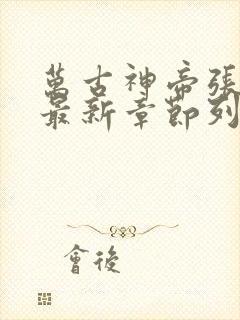 萬古神帝張
最新章節列
會後